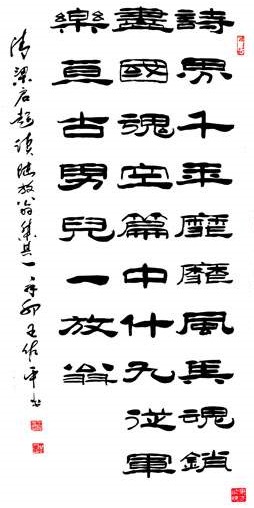 詩界千年靡靡風兵魂銷
盡國魂空篇中什九從軍
樂亘古男兒一放翁
清梁启超读陆放翁集其一辛卯王